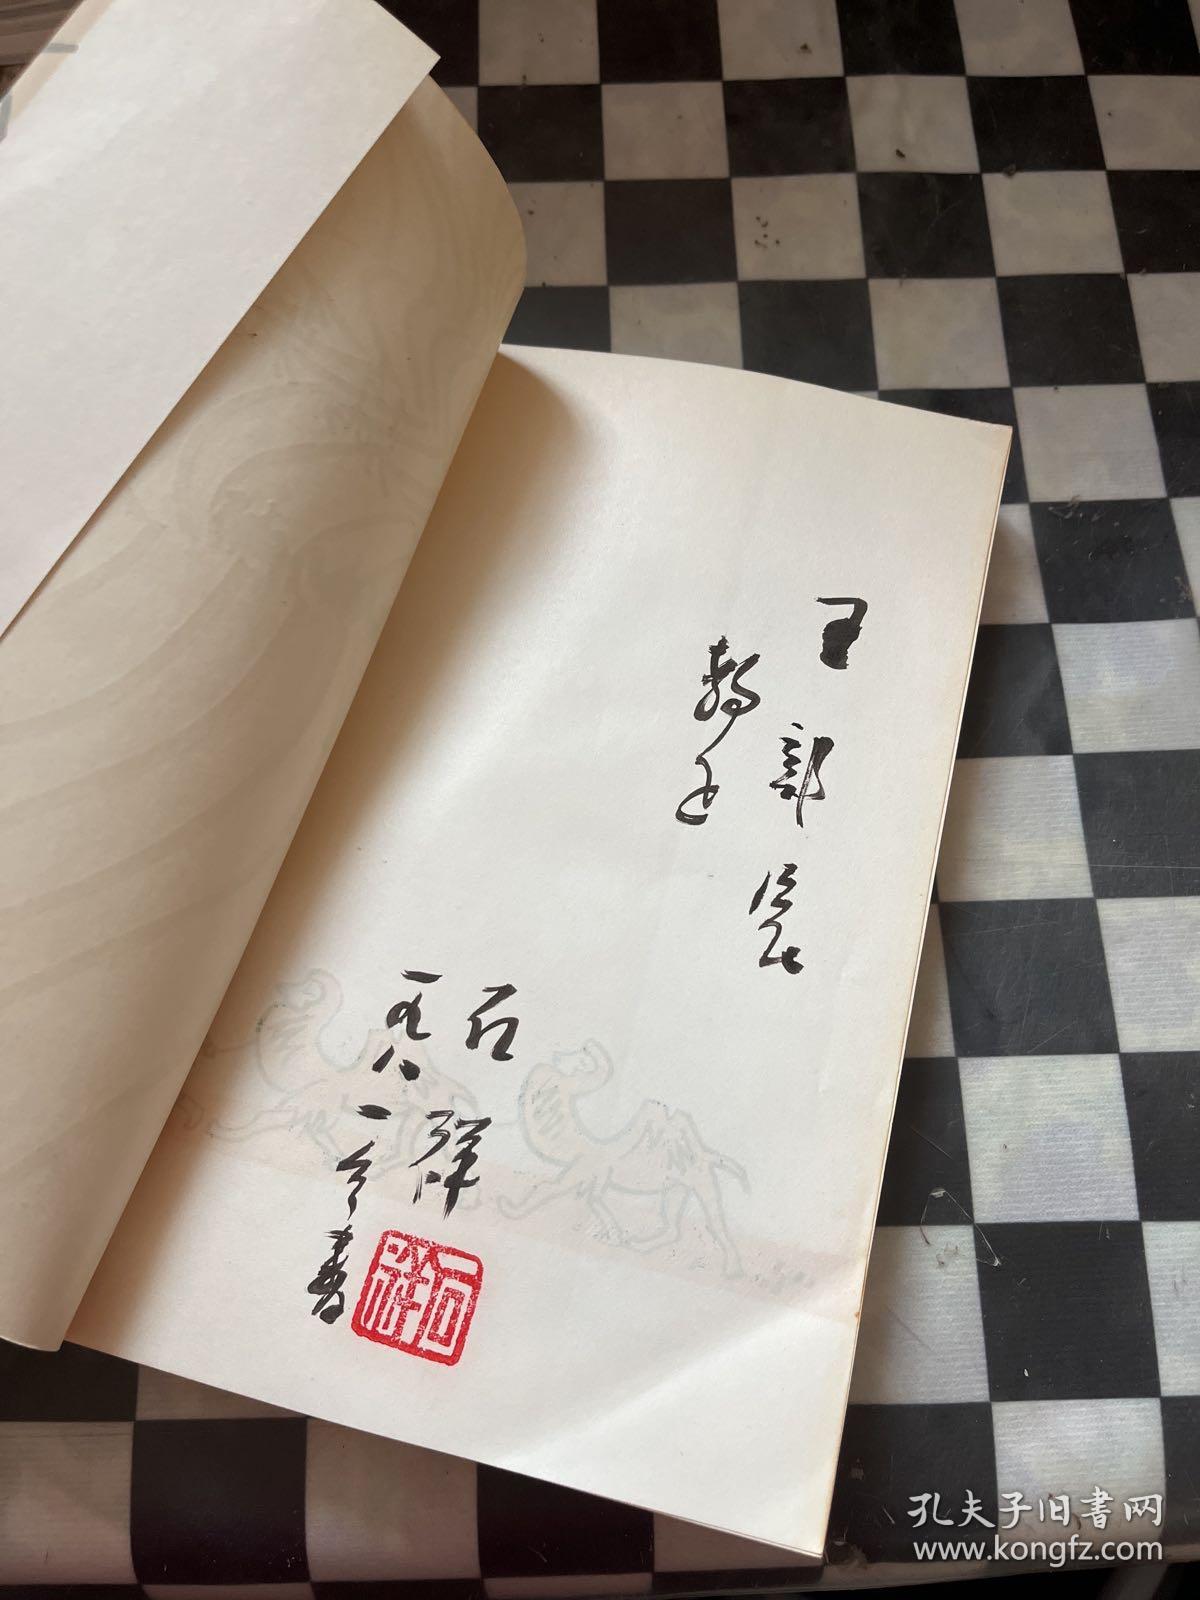 王部長
教正
石祥
一九八一年春
石祥
孔夫子旧書网
www.kongfz.com